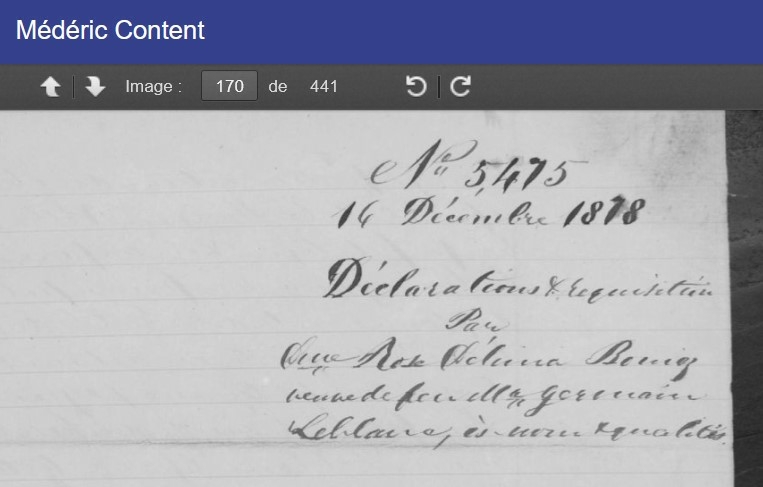 Médéric Content
Image : 170 de 441
No 5,475
16 Décembre 1878
Déclarations & requisition
Par
Dme Rose Délima
veuve de feu Mr Germain
Leblanc, ès-nom & qualités.